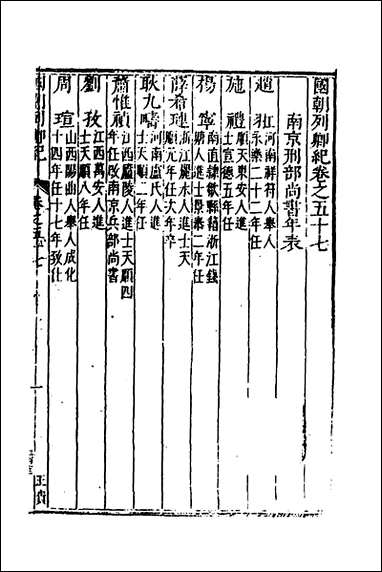 國朝列卿紀卷之五十七
南京刑部尚書年表
趙羾 河南祥符人舉人
永樂二十二年任
施禮 順天東安人進
士宣德五年任
楊寧 南直隷歙縣籍浙江錢
塘人進士景泰二年任
薛希璉 浙江麗水人進士天
順元年任次年卒
耿九疇 河南盧氏人進
士天順二年任
蕭惟禎 江西廬陵人進士天順四
年任改南京兵部尚書
劉孜 江西萬安人進
士天順八年任
周瑄 山西陽曲人舉人成化
十四年任十七年致仕
國朝列卿紀
卷之五十七
一
王貴